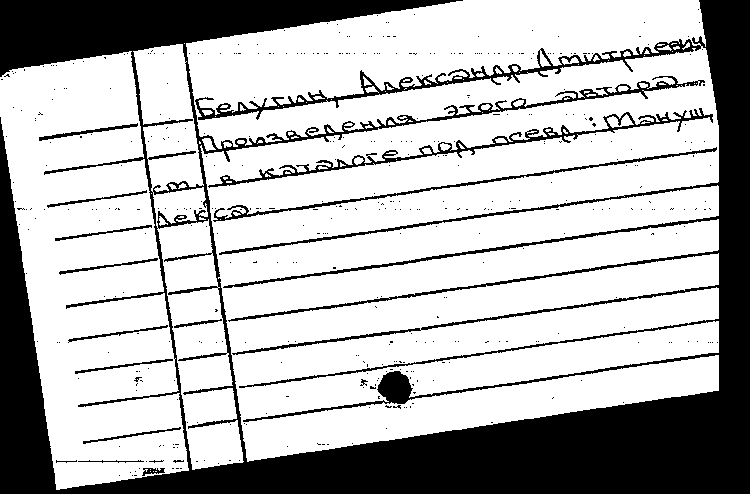 Белугин, Александр Дмитриевич
Произведения этого автора
см. в каталоге под псевд.: Мануш,
Лекса.